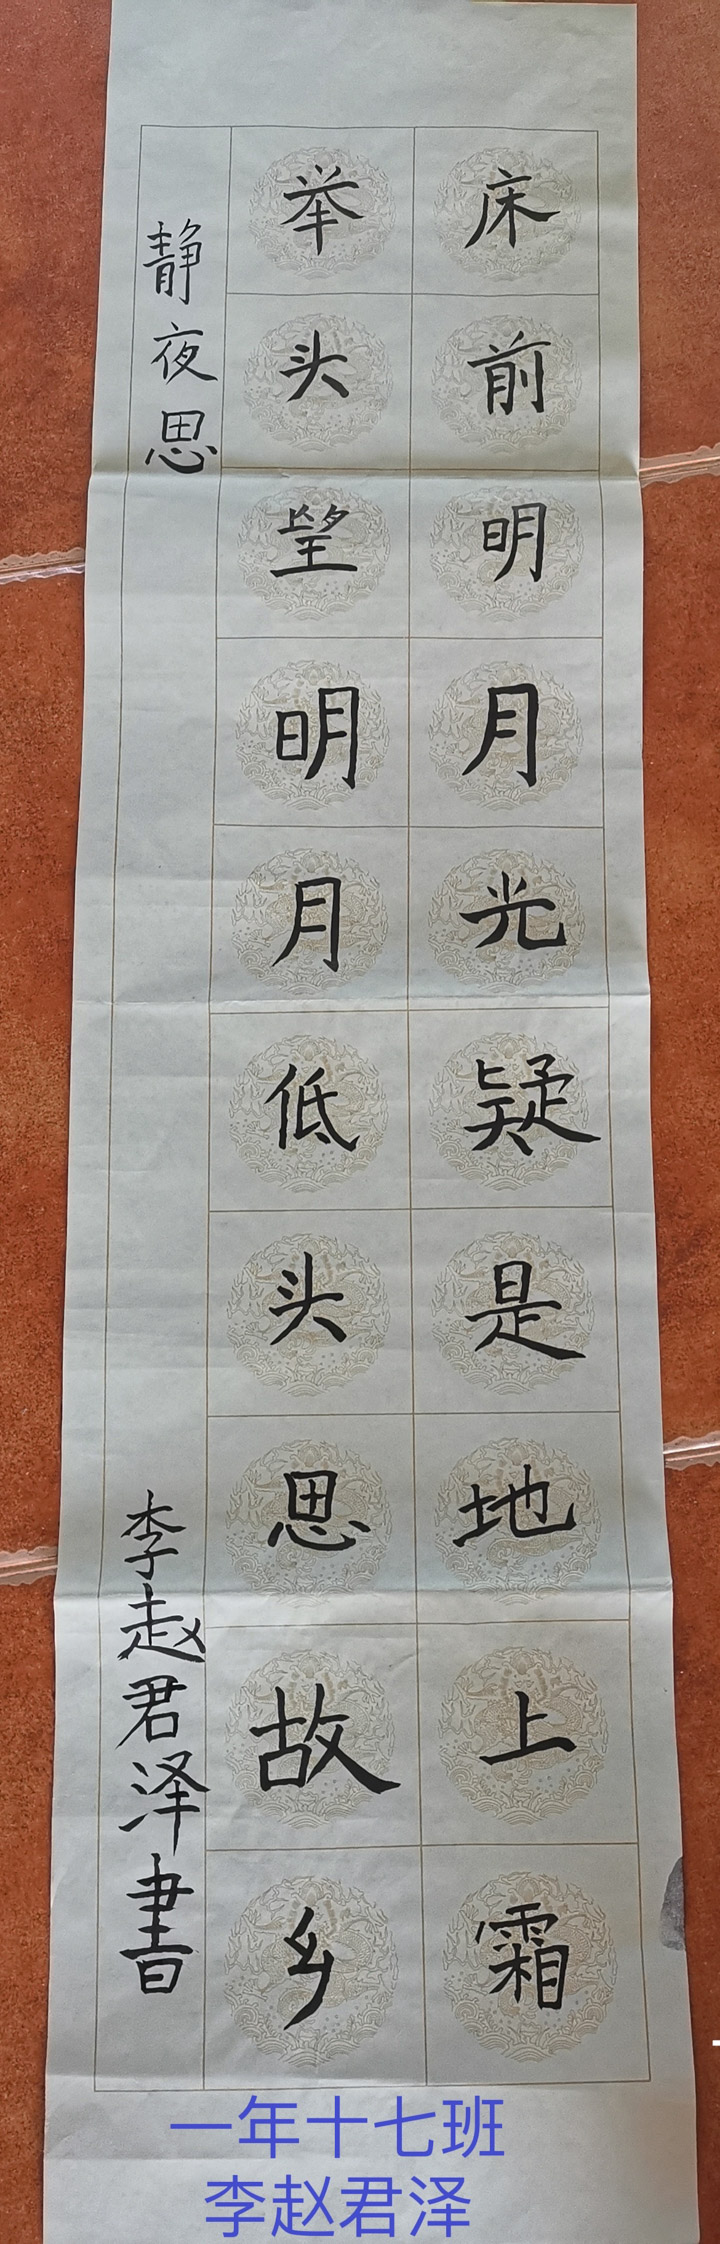 床前明月光疑是地上霜
举头望明月低头思故乡
静夜思
李赵君泽書
一年十七班
李赵君泽